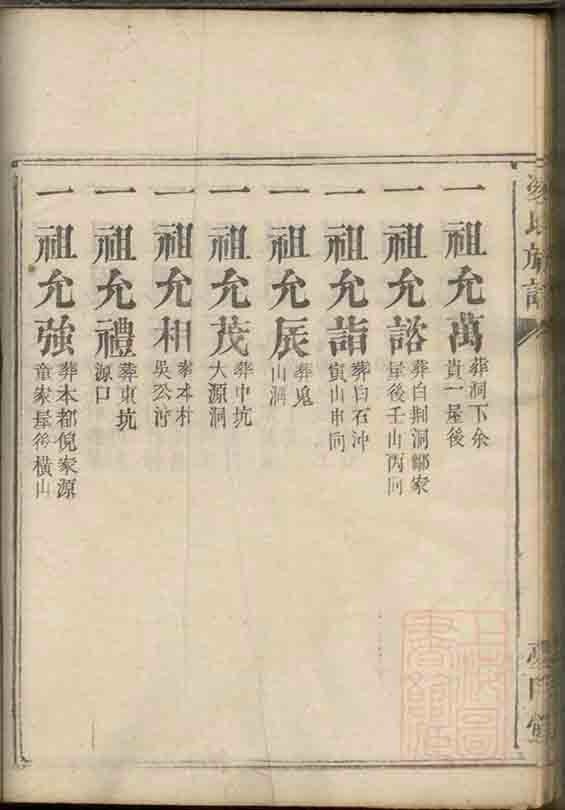 一祖允萬 葬洞下余貴一屋後
一祖允諮 葬白荆洞鄒家屋後壬山丙向
一祖允詣 葬白石沖寅山申向
一祖允辰 葬鬼山洞
一祖允茂 葬中坑大源洞
一祖允相 葬本村吳公湾
一祖允禮 葬東坑源口
一祖允強 葬本都倪家源童家屋後橫山
氏族譜
上海圖書館藏